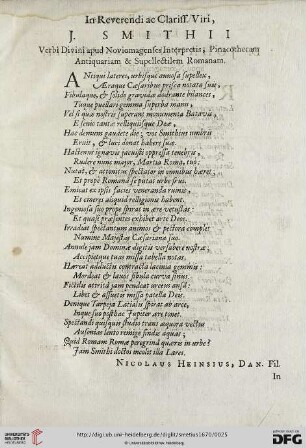 In Reverendi ac Clariss. Viri,
J. SMITHII
Verbi Divini apud Noviomagenses Interpretis, Pinacothecam
Antiquariam & Supellectilem Romanam.
ANtiqui lateres, urbisque annosa supellex,
Æraque Cæsaribus prisca notata suis,
Fibulaque, & solidæ gravidæ
Tuque puellari gemma superba manu,
Vel si quæ nostris superant monumenta Batavis,
E sævis tantæ relliquiisque Deæ,
Hac demum gaudete die; vos Smithius umbris
Eruit, & luci donat habere suæ.
Hactenus ignavis jacuisti oppressa tenebris,
Rudere nunc major, Martia Roma, tuo;
Nutat, & attonitus spectator in omnibus hæret,
Et propè Romanâ se putat urbe frui.
Emicat ex ipsis facies veneranda ruinis,
Et cineres aliquid relligionis habent.
Ingeniosa suo prope spirat in ære vetustas:
Et quasi præsentes exhibet arte Deos.
Irradiat spectantum animos & pectora complet
Numine Majestas Cæsariana suo.
Annule jam Dominæ digitos versabere nostræ,
Accipietque tuas missa tabella notas.
Hæreat adductis contracta lacinia gemmis:
Mordeat & laxos fibula curva sinus.
Fictilis attritâ jam pendeat arceus ansâ:
Libet & assuetas missa patella Deos.
Denique Tarpeja Latialis spiret ab arce,
Inque suo postbac Jupiter ære tonet.
Spectandi quisquis studio trans æquora vectus
Ausonias lento remige findis aquas;
Quid Romam Romæ peregrinâ quæris in urbe?
Jam Smithî doctos incolit illa Lares.
NICOLAUS HEINSIUS, DAN. Fil.
In
http://digi.ub.uni-heidelberg.de/diglit/smetius1678/0025
© Universitätsbibliothek Heidelberg
UNIVERSITÄTS-
BIBLIOTHEK
HEIDELBERG
gefördert durch die
DFG